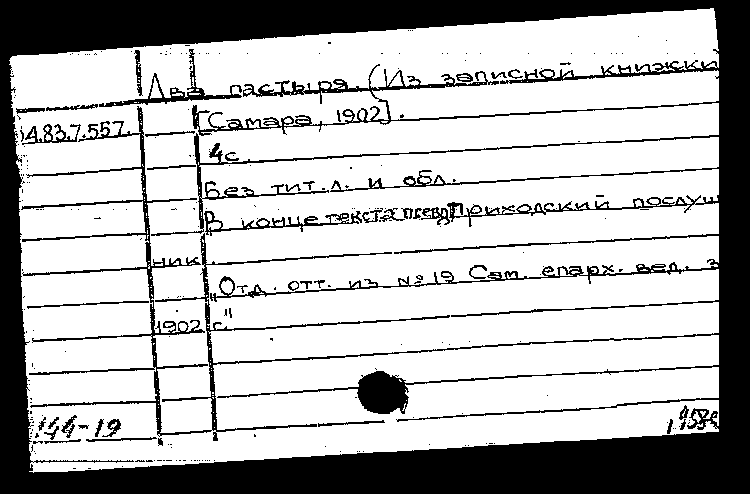 Два пастыря. (Из записной книжки
А.83.7.557. [Самара, 1902].
4с.
Без тит.л. и обл.
В конце текста псевд: Приходский послуш
ник.
"Отд. отт. из №19 Сам. епарх. вед. з
1902 г."
144-19